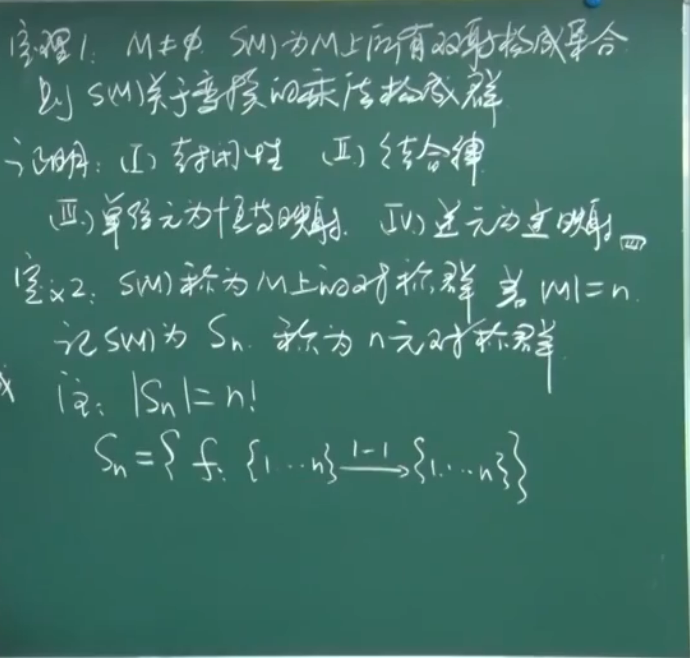 定理1. M≠φ. S(M)为M上所有双射构成集合
则 S(M)关于变换的乘法构成群
证明: (I) 封闭性 (II) 结合律
(III) 单位元为恒等映射. (IV) 逆元为逆映射
定义2: S(M)称为M上的对称群 若|M|=n.
记S(M)为 Sn 称为n元对称群
注: |Sn|=n!
Sn={ f: {1…n} 1-1→ {1,…n}}